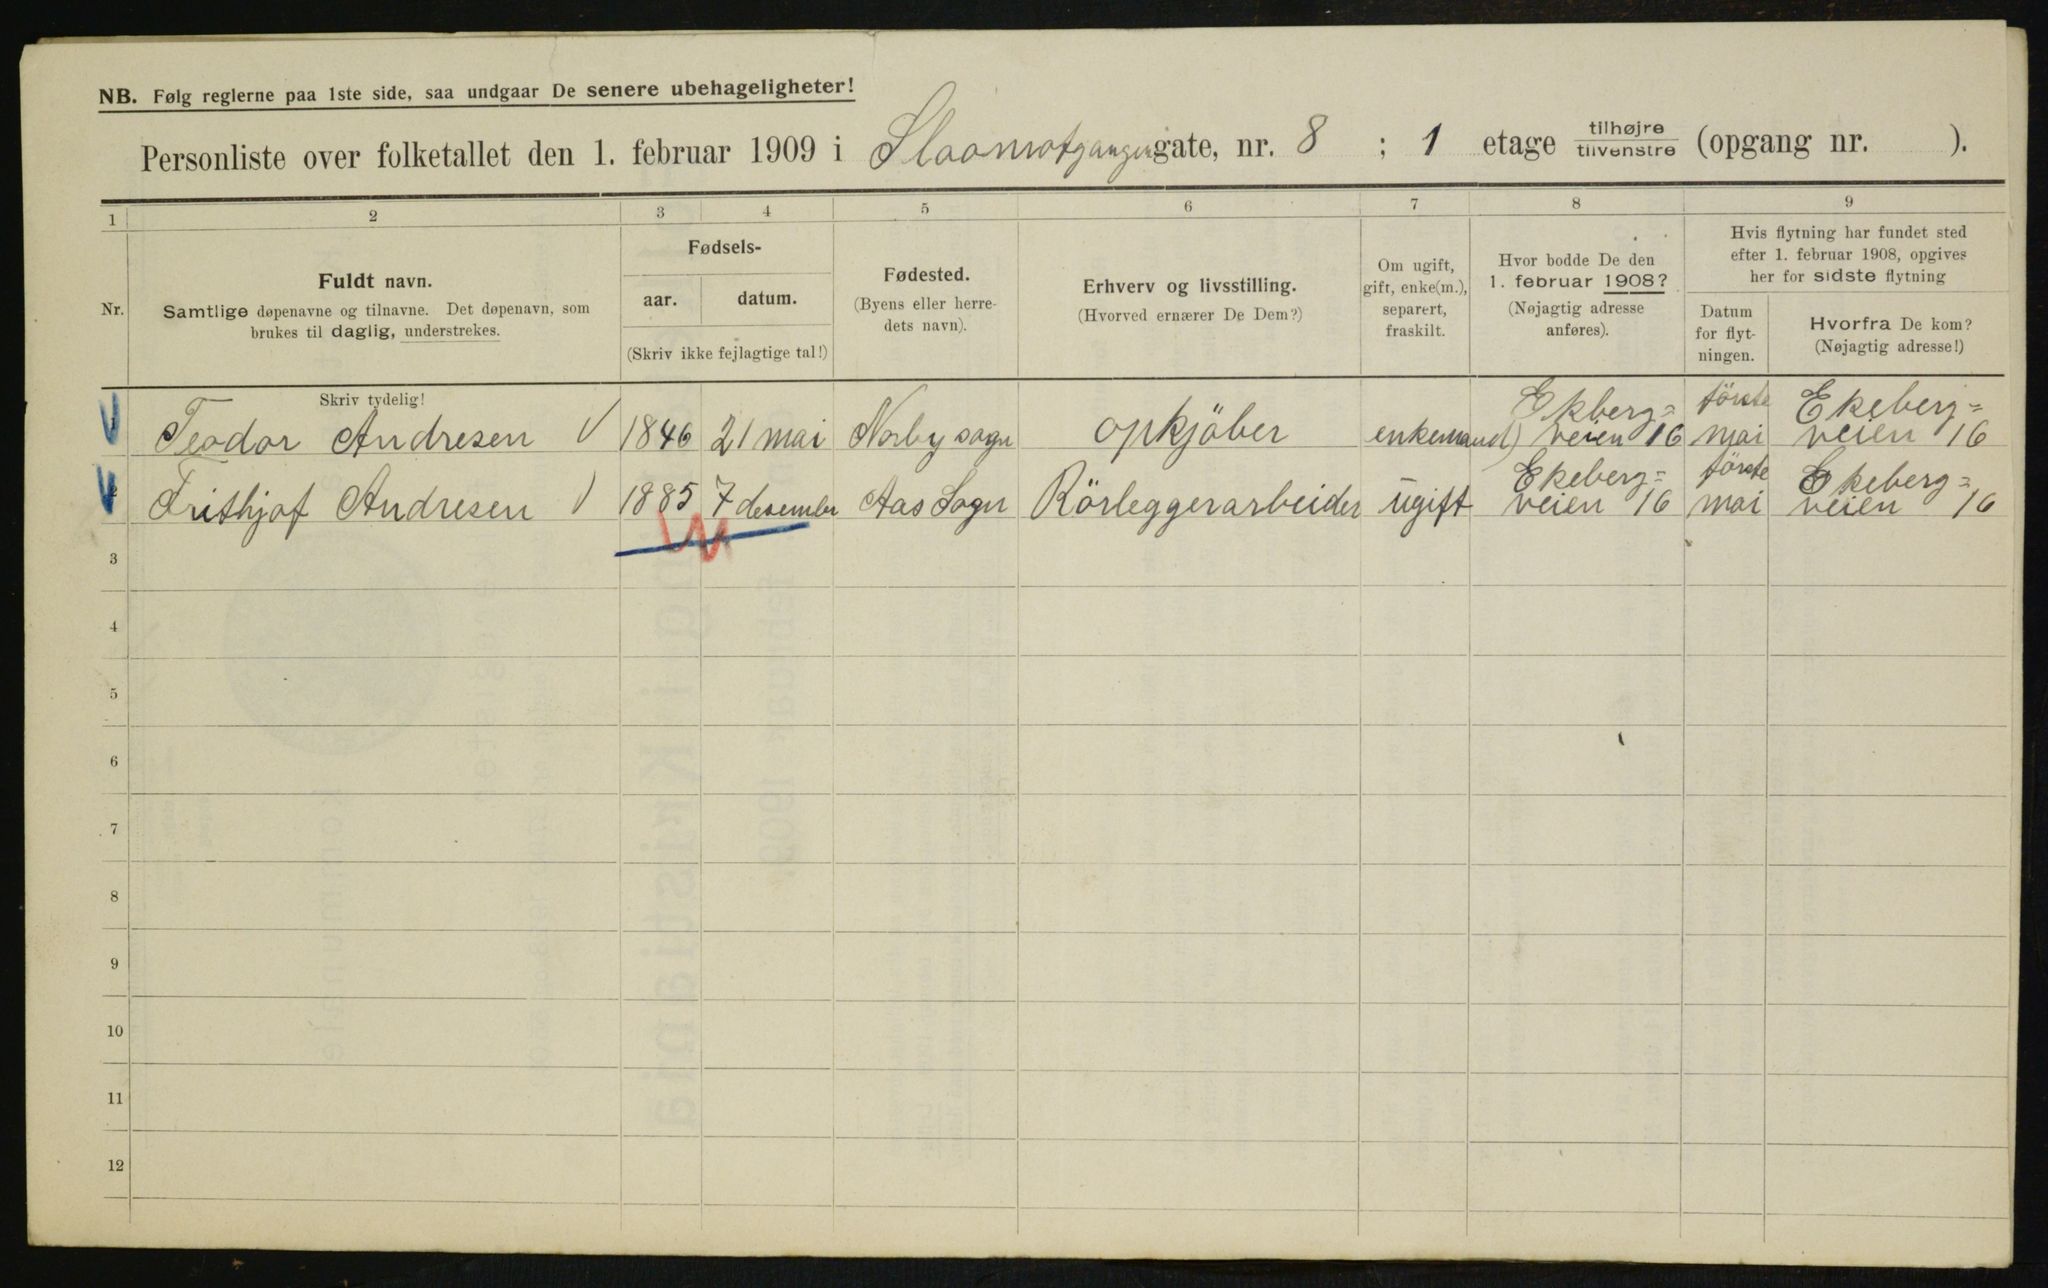 NB. Følg reglerne paa 1ste side, saa undgaar De senere ubehageligheter!
Personliste over folketallet den 1. februar 1909 i gate, nr. 8 ; 1 etage tilhøjre tilvenstre (opgang nr. ).
1 2 3 4 5 6 7 8 9
Nr.
Fuldt navn.
Samtlige døpenavne og tilnavne. Det døpenavn, som
brukes til daglig, understrekes.
Fødsels-
aar. datum.
(Skriv ikke fejlagtige tal!)
Fødested.
(Byens eller herre-
dets navn).
Erhverv og livsstilling.
(Hvorved ernærer De Dem?)
Om ugift,
gift, enke(m.),
separert,
fraskilt.
Hvor bodde De den
1. februar 1908?
(Nøjagtig adresse
anføres).
Hvis flytning har fundet sted
efter 1. februar 1908, opgives
her for sidste flytning
Datum
for flyt-
ningen.
Hvorfra De kom?
(Nøjagtig adresse!)
Skriv tydelig!
Teodor Andresen 1846 21 mai Norby sogn opkjöber enkemand Ekberg= veien 16 förste mai Ekeberg= veien 16
2 Frithjof Andresen 1885 7 desember Aas Sogn Rörleggerarbeider ugift Ekeberg= veien 16 förste mai Ekeberg= veien 16
3
4
5
6
7
8
9
10
11
12